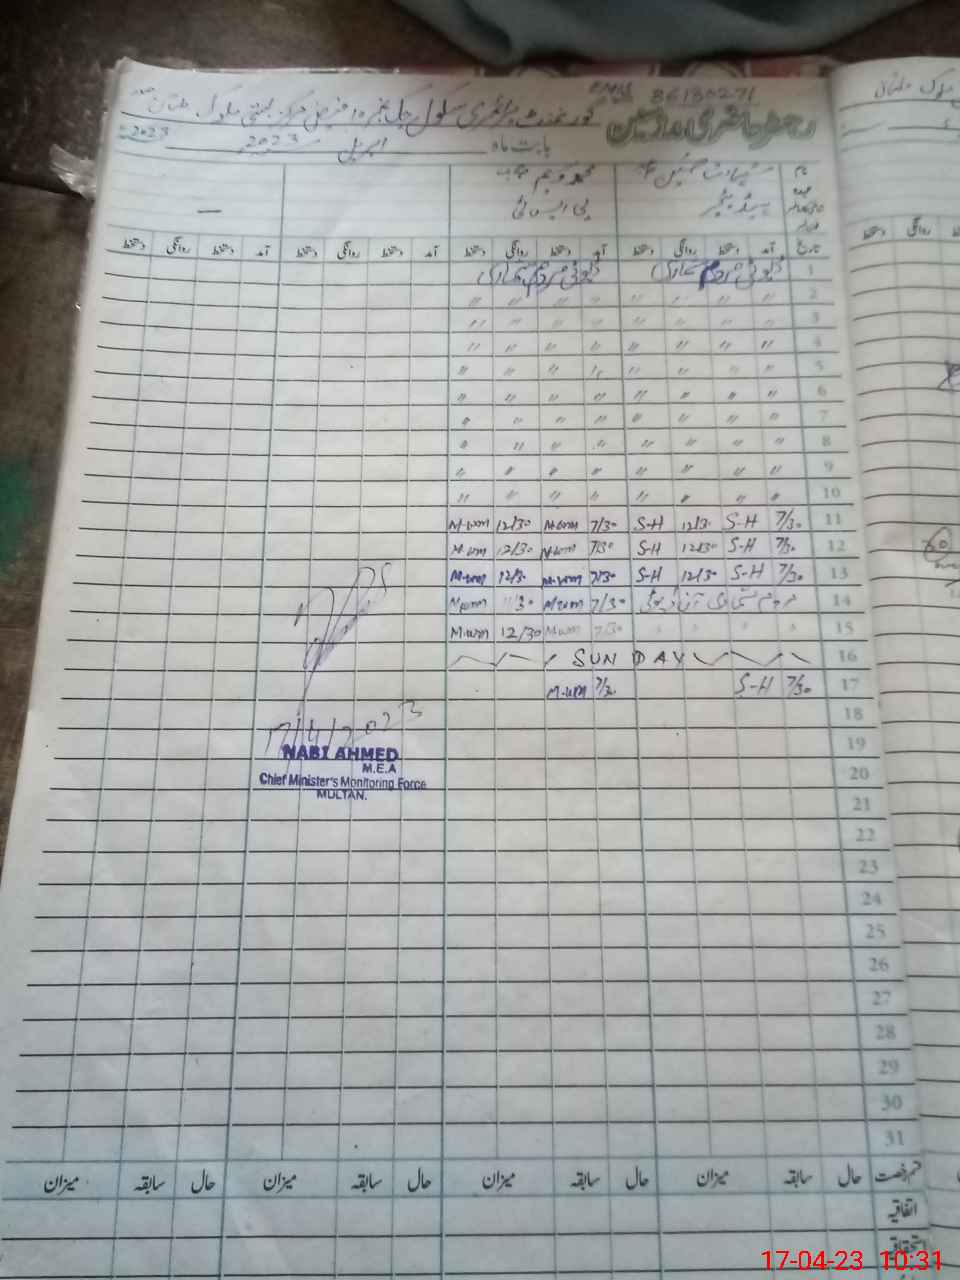 EMIS 36180271
رجسٹر حاضری ملازمین گورنمنٹ پرائمری سکول چک نمبر ۱۰ فیض مرکز بستی ملوک ملتان
بابت ماہ اپریل 2023 2023
نام
عہدہ ہیڈ ٹیچر پی ایس ٹی —
تاریخ آمد دستخط روانگی دستخط آمد دستخط روانگی دستخط آمد دستخط روانگی دستخط آمد دستخط روانگی دستخط
1 ڈیوٹی مردم شماری ڈیوٹی مردم شماری
2 〃 〃 〃 〃 〃 〃 〃 〃
3 〃 〃 〃 〃 〃 〃 〃 〃
4 〃 〃 〃 〃 〃 〃 〃 〃
5 〃 〃 〃 〃 〃 〃 〃 〃
6 〃 〃 〃 〃 〃 〃 〃 〃
7 〃 〃 〃 〃 〃 〃 〃 〃
8 〃 〃 〃 〃 〃 〃 〃 〃
9 〃 〃 〃 〃 〃 〃 〃 〃
10 〃 〃 〃 〃 〃 〃 〃 〃
11 7/30 S-H 12/30 S-H 7/30 M-wm 12/30 M-wm
12 7/30 S-H 12/30 S-H 7/30 M-wm 12/30 M-wm
13 7/30 S-H 12/30 S-H 7/30 M-wm 12/30 M-wm
14 مردم شماری آن ڈیوٹی 7/30 M-wm 11/30 M-wm
15 〃 〃 〃 〃 7/30 M-wm 12/30 M-wm
16 SUNDAY
17 7/30 S-H 7/30 M-wm
18
19
20
21
22
23
24
25
26
27
28
29
30
31
17/4/2023
NABI AHMED
M.E.A
Chief Minister's Monitoring Force
MULTAN.
قسم رخصت حال سابقہ میزان حال سابقہ میزان حال سابقہ میزان حال سابقہ میزان
اتفاقیہ
استحقاقیہ
17-04-23 10:31